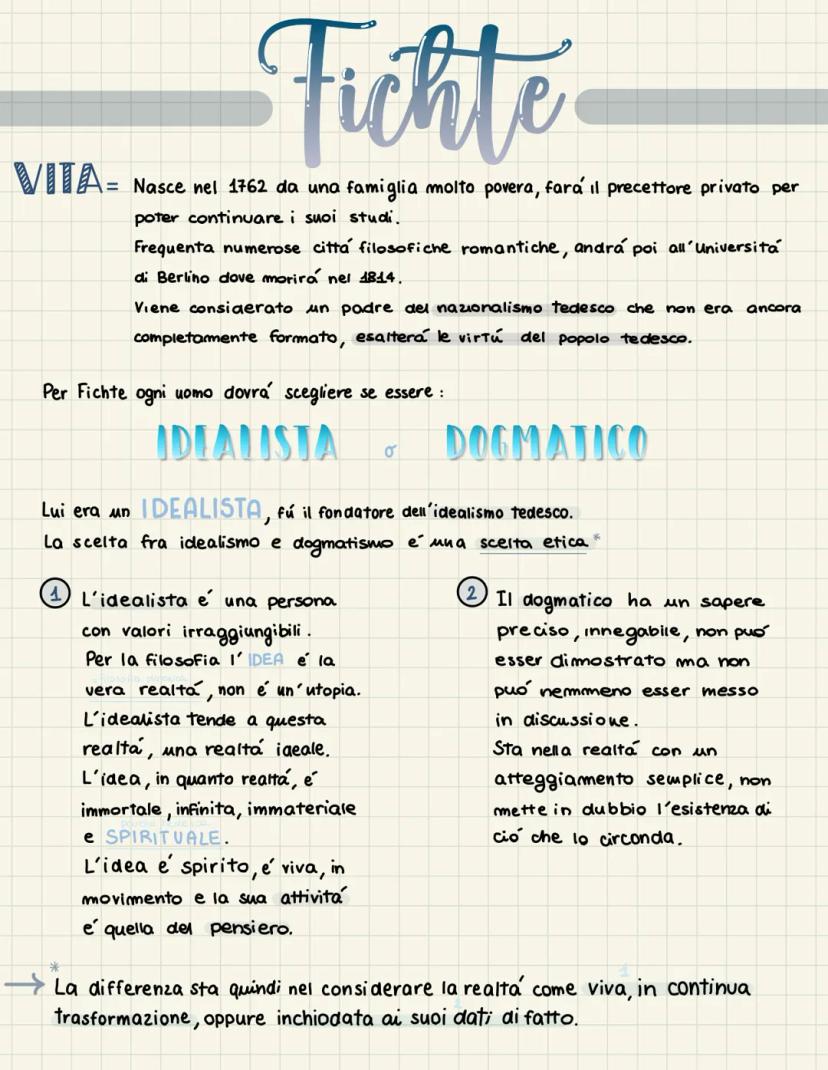 Fichte
VITA = Nasce nel 1762 da una famiglia molto povera, fará il precettore privato per
poter continuare i suoi studi.
Frequenta numerose cittá filosofiche romantiche, andrá poi all'Universitá
di Berlino dove morirá nel 1814.
Viene considerato un padre del nazionalismo tedesco che non era ancora
completamente formato, esalterá le virtú del popolo tedesco.
Per Fichte ogni uomo dovrá scegliere se essere:
IDEALISTA o DOGMATICO
Lui era un IDEALISTA, fú il fondatore dell'idealismo tedesco.
La scelta fra idealismo e dogmatismo é una scelta etica*
1 L'idealista é una persona
con valori irraggiungibili.
Per la filosofia l'IDEA é la
vera realtá, non é un'utopia.
L'idealista tende a questa
realtá, una realtá ideale.
L'idea, in quanto realtá, é
immortale, infinita, immateriale
e SPIRITUALE.
L'idea é spirito, é viva, in
movimento e la sua attivitá
é quella del pensiero.
2 Il dogmatico ha un sapere
preciso, innegabile, non puó
esser dimostrato ma non
puó nemmeno esser messo
in discussione.
Sta nella realtá con un
atteggiamento semplice, non
mette in dubbio l'esistenza di
ció che lo circonda.
*
→ La differenza sta quindi nel considerare la realtá come viva, in continua
trasformazione, oppure inchiodata ai suoi dati di fatto.